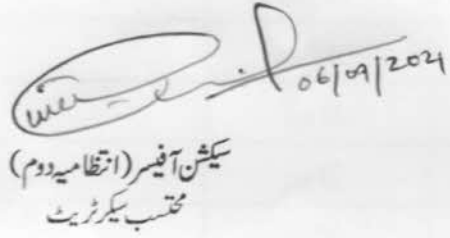 06/09/2021
سیکشن آفیسر (انتظامیہ دوم)
محتسب سیکرٹریٹ